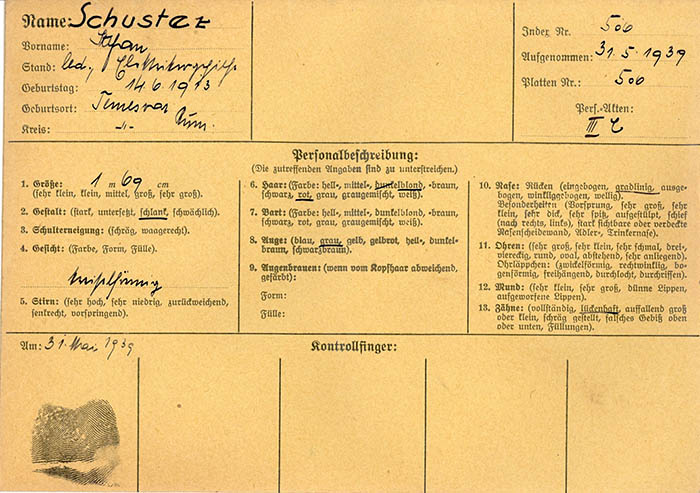 Name: Schuster
Vorname: Stefan
Stand: led.,
Geburtstag: 14.6.1913
Geburtsort: Temesvar
Kreis: -"- Rum.
Index Nr. 506
Aufgenommen: 31.5.1939
Platten Nr.: 506
Pers.-Akten:
III
Personalbeschreibung:
(Die zutreffenden Angaben sind zu unterstreichen.)
1. Größe: 1 m 69 cm
(sehr klein, klein, mittel, groß, sehr groß).
2. Gestalt: (stark, untersetzt, schlank, schwächlich).
3. Schulterneigung: (schräg, waagerecht).
4. Gesicht: (Farbe, Form, Fülle).
5. Stirn: (sehr hoch, sehr niedrig, zurückweichend,
senkrecht, vorspringend).
6. Haar: (Farbe: hell-, mittel-, dunkelblond, -braun,
schwarz, rot, grau, graugemischt, weiß).
7. Bart: (Farbe: hell-, mittel-, dunkelblond, -braun,
schwarz, rot, grau, graugemischt, weiß).
8. Auge: (blau, grau, gelb, gelbrot, hell-, dunkel-
braun, schwarzbraun).
9. Augenbrauen: (wenn vom Kopfhaar abweichend,
gefärbt):
Form:
Fülle:
10. Nase: Rücken (eingebogen, gradlinig, ausge-
bogen, winkliggebogen, wellig).
Besonderheiten (Vorsprung, sehr groß, sehr
klein, sehr dick, sehr spitz, aufgestülpt, schief
(nach rechts, links), stark sichtbare oder verdeckte
Nasenscheidewand, Adler-, Trinkernase).
11. Ohren: (sehr groß, sehr klein, sehr schmal, drei-,
viereckig, rund, oval, abstehend, sehr anliegend).
Ohrläppchen: (zwickelförmig, rechtwinklig, bo-
genförmig, freihängend, durchlocht, durchriffen).
12. Mund: (sehr klein, sehr groß, dünne Lippen,
aufgeworfene Lippen).
13. Zähne: (vollständig, lückenhaft, auffallend groß
oder klein, schräg gestellt, falsches Gebiß oben
oder unten, Füllungen).
Am: 31. Mai 1939
Kontrollfinger: